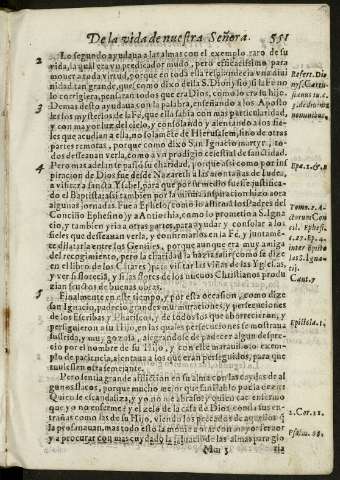 De la vida de nuestra Señora. 551
2 Lo segundo ayudaua a las almas con el exemplo raro de su
vida, la qual era vn predicador mudo, pero eficacissimo para
mouer a toda virtud, porque en toda ella resplandecia vna diui
nidad tan grande, que, como dixo della S. Dionysio, si la Fè no
lo corrigiera, pensaran todos que era Dios, como lo era su hijo.
3 Demas desto ayudaua con la palabra, enseñando a los Aposto
les los mysterios de la Fè, que ella sabia con mas particularidad,
y con mayor luz del cielo, y consolando, y alentando a los fie-
les que acudian a ella, no solamẽte de Hierusalem, sino de otras
partes remotas, porque como dixo San Ignacio martyr, to-
dos desseauan verla, como a vn prodigio celestial de santidad.
4 Pero mas adelante passò su charidad, porque assi como por ins
piracion de Dios fue desde Nazareth a las montañas de Iudea,
a visitar a santa Ysabel, para que por su medio fuesse justifica-
do el Baptista: assi tambien por la misma inspiracion hizo aora
algunas jornadas Fue a Ephesso, como lo afirmã los Padres del
Concilio Ephesino y a Antiochia, como lo prometio a S. Igna
cio, y tambien yria a otras partes, para ayudar y consolar a los
fieles que desseauan verla, y confirmarlos en la Fè, y juntamẽ-
te dilatarla entre los Gentiles, porque aunque era muy amiga
del recogimiento, pero la charidad la hazia salir como se dize
en el libro de los Cantares para visitar las viñas de las Yglesias,
y ver si florecia, y si las flores de los nueuos Christianos produ
zian frutos de buenas obras.
5 Finalmente en este tiempo, y por esta ocasion, como dize
san Ignacio, padecio grandes murmuraciones, y persecuciones
de los Escribas y Phariseos, y de todos los que aborrecieron, y
persiguieron a su Hijo, en las quales persecuciones se mostraua
sufrida, y muy gozosa, alegrandose de padecer algun despre-
cio por el nombre de su Hijo, y con este marauilloso exem-
plo de paciencia, alentaua a los que eran perseguidos, para que
tuuiessen otra semejante.
Pero sentia grande afliccion en su alma con las caydas de al
gunos flacos, porque mucho mejor que san Pablo podia dezir
Quien se escandaliza, y yo no me abraso? y quien cae enfermo
que yo no enferme? y el zelo de la casa de Dios comia sus en-
trañas como las de su Hijo, viendo los pecados de aquellos q̃
la profanauan, mas todo esto la mouia a orar con mayor feruor
y a procurar con mas cuydado la saluacion de las almas para glo
Mm 3 ria
Refert. Dio
nys. Cartu-
Epist. 1.
2. Cor. 11.
Psalm. 68.